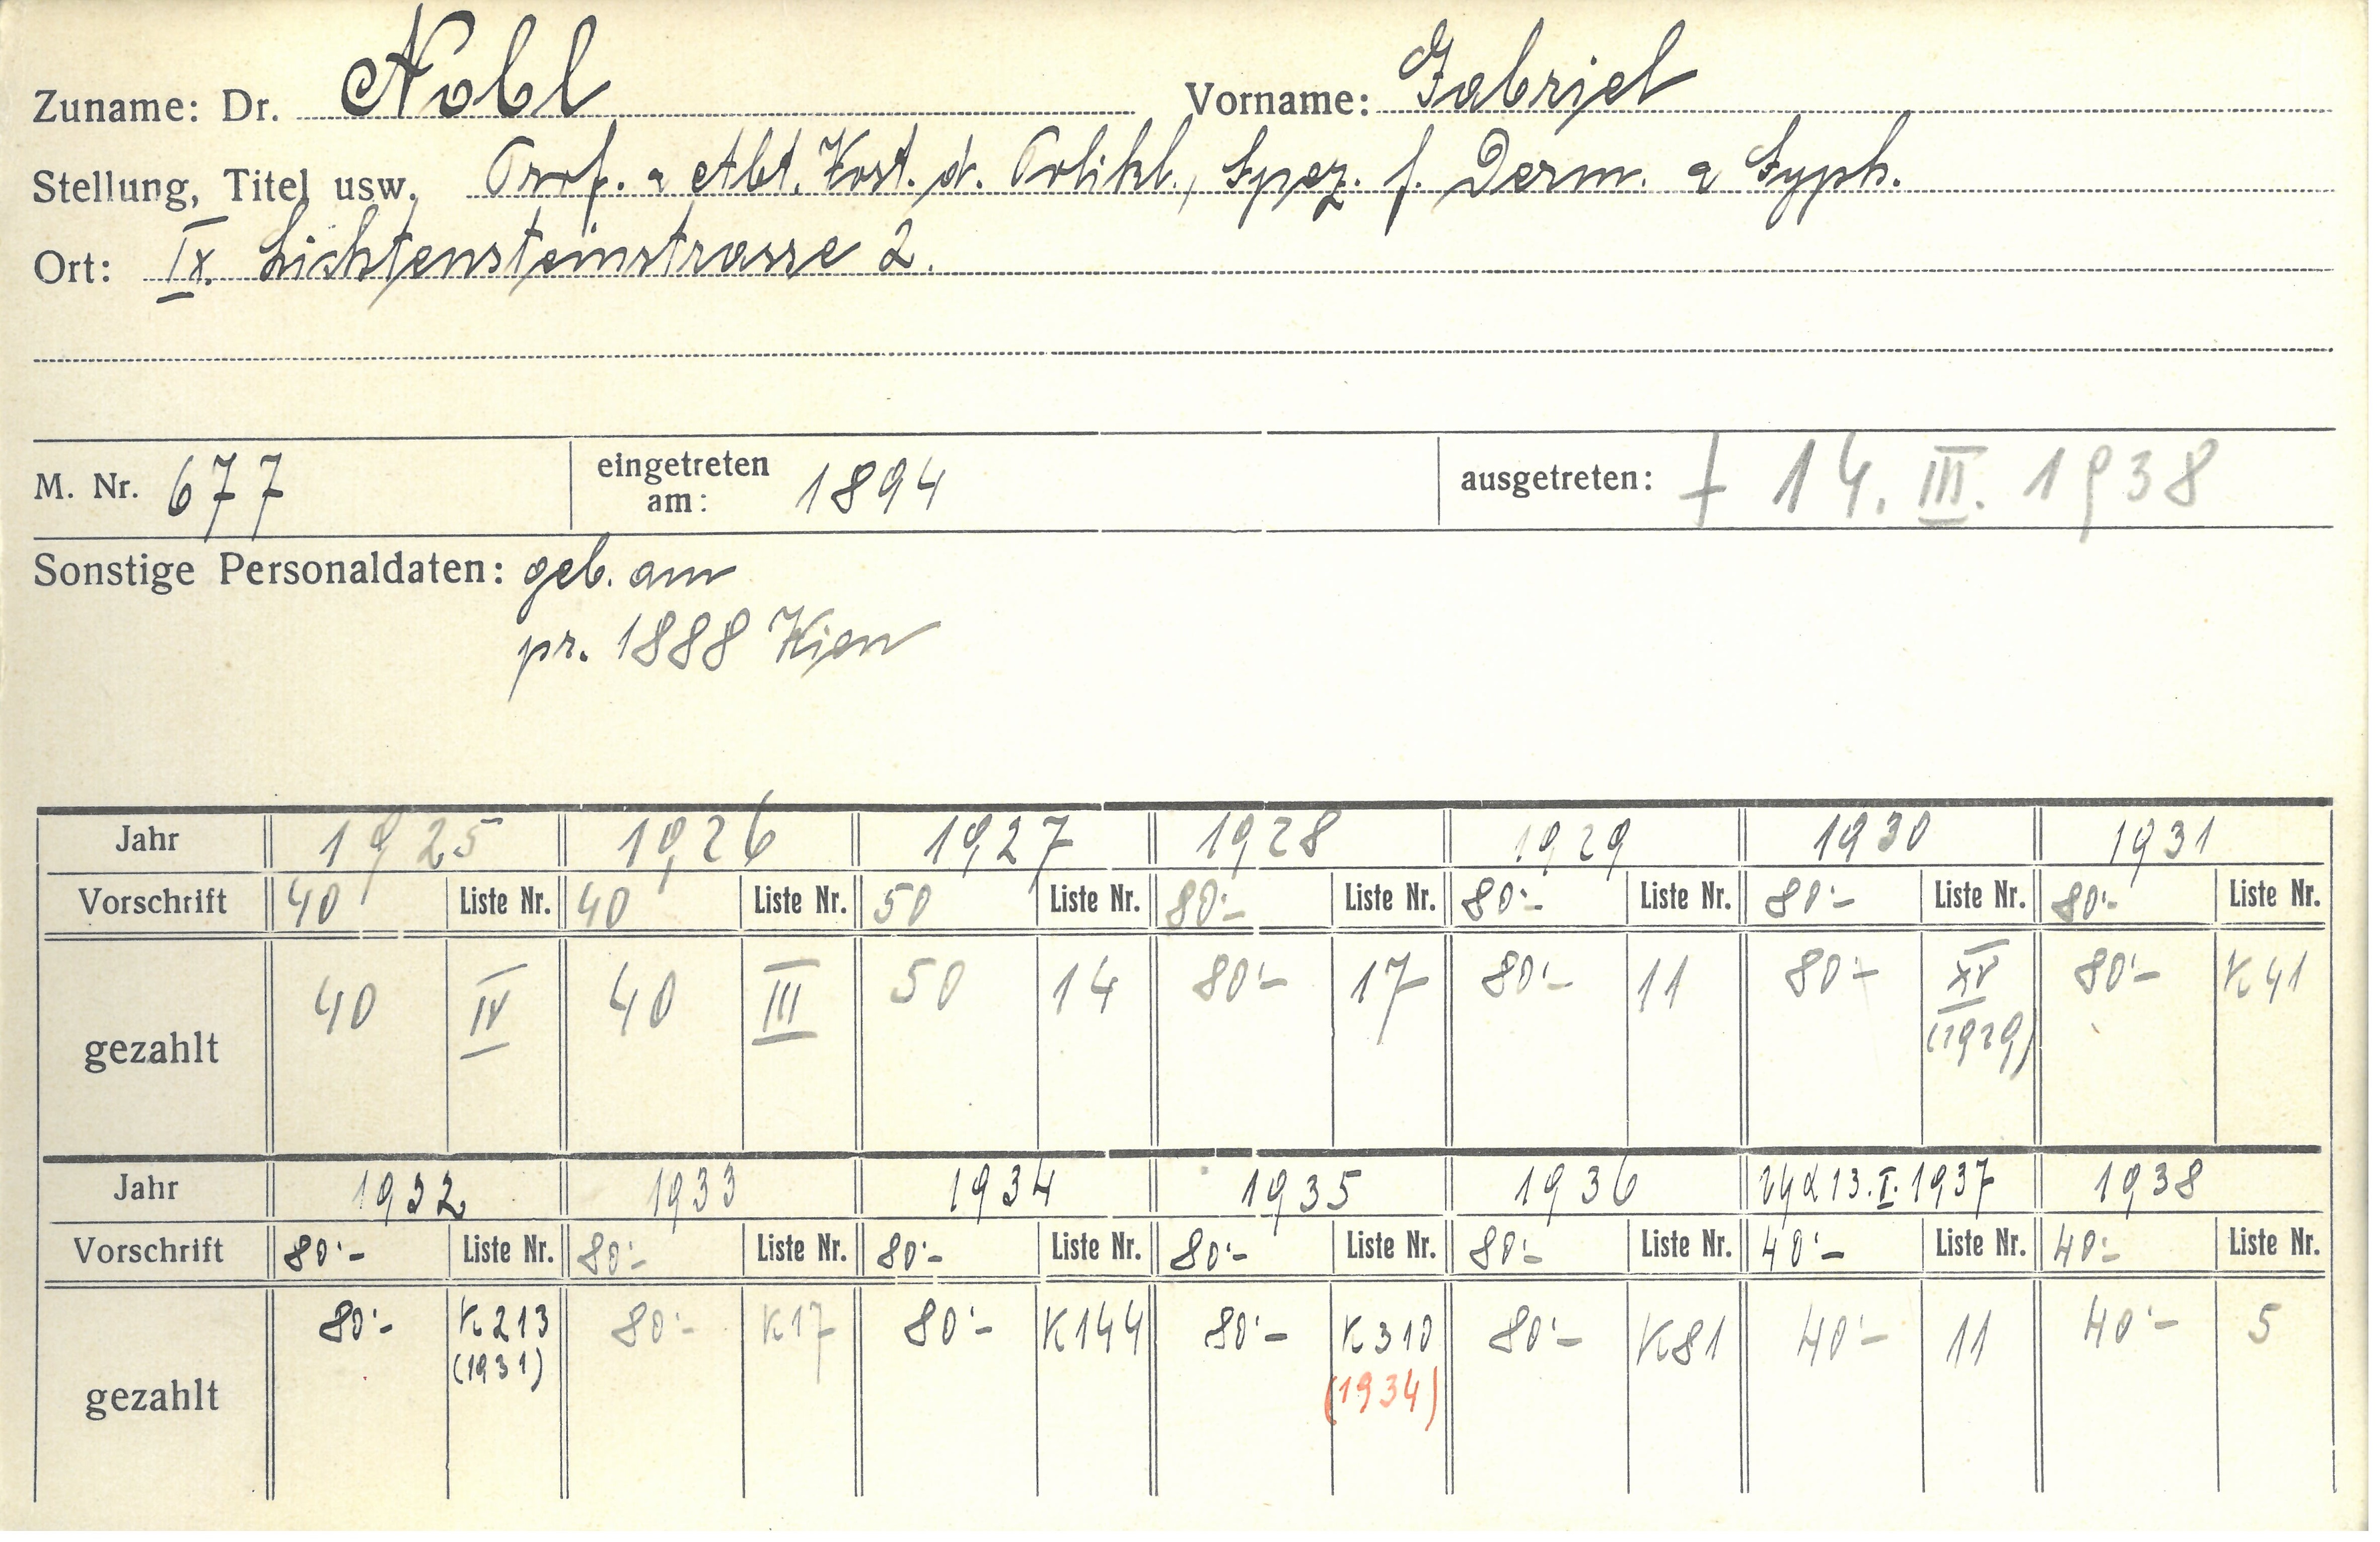 Zuname: Dr. Nobl Vorname: Gabriel
Stellung, Titel usw. Prof. u Abt. Vorst. d. Polikl., Spez. f. Derm. u Syph.
Ort: IX. Lichtensteinstrasse 2.
M. Nr. 677 eingetreten am: 1894 ausgetreten: † 14. III. 1938
Sonstige Personaldaten: geb. am
pr. 1888 Wien
Jahr 1925 1926 1927 1928 1929 1930 1931
Vorschrift 40 Liste Nr. 40 Liste Nr. 50 Liste Nr. 80·- Liste Nr. 80·- Liste Nr. 80·- Liste Nr. 80·- Liste Nr.
gezahlt 40 IV 40 III 50 14 80·- 17 80·- 11 80·- XV 80·- K 41
(1929)
Jahr 1932 1933 1934 1935 1936 13. I. 1937 1938
Vorschrift 80·- Liste Nr. 80·- Liste Nr. 80·- Liste Nr. 80·- Liste Nr. 80·- Liste Nr. 40·- Liste Nr. 40·- Liste Nr.
gezahlt 80·- K 213 80·- K 17 80·- K 144 80·- K 310 80·- K 81 40·- 11 40·- 5
(1931) (1934)